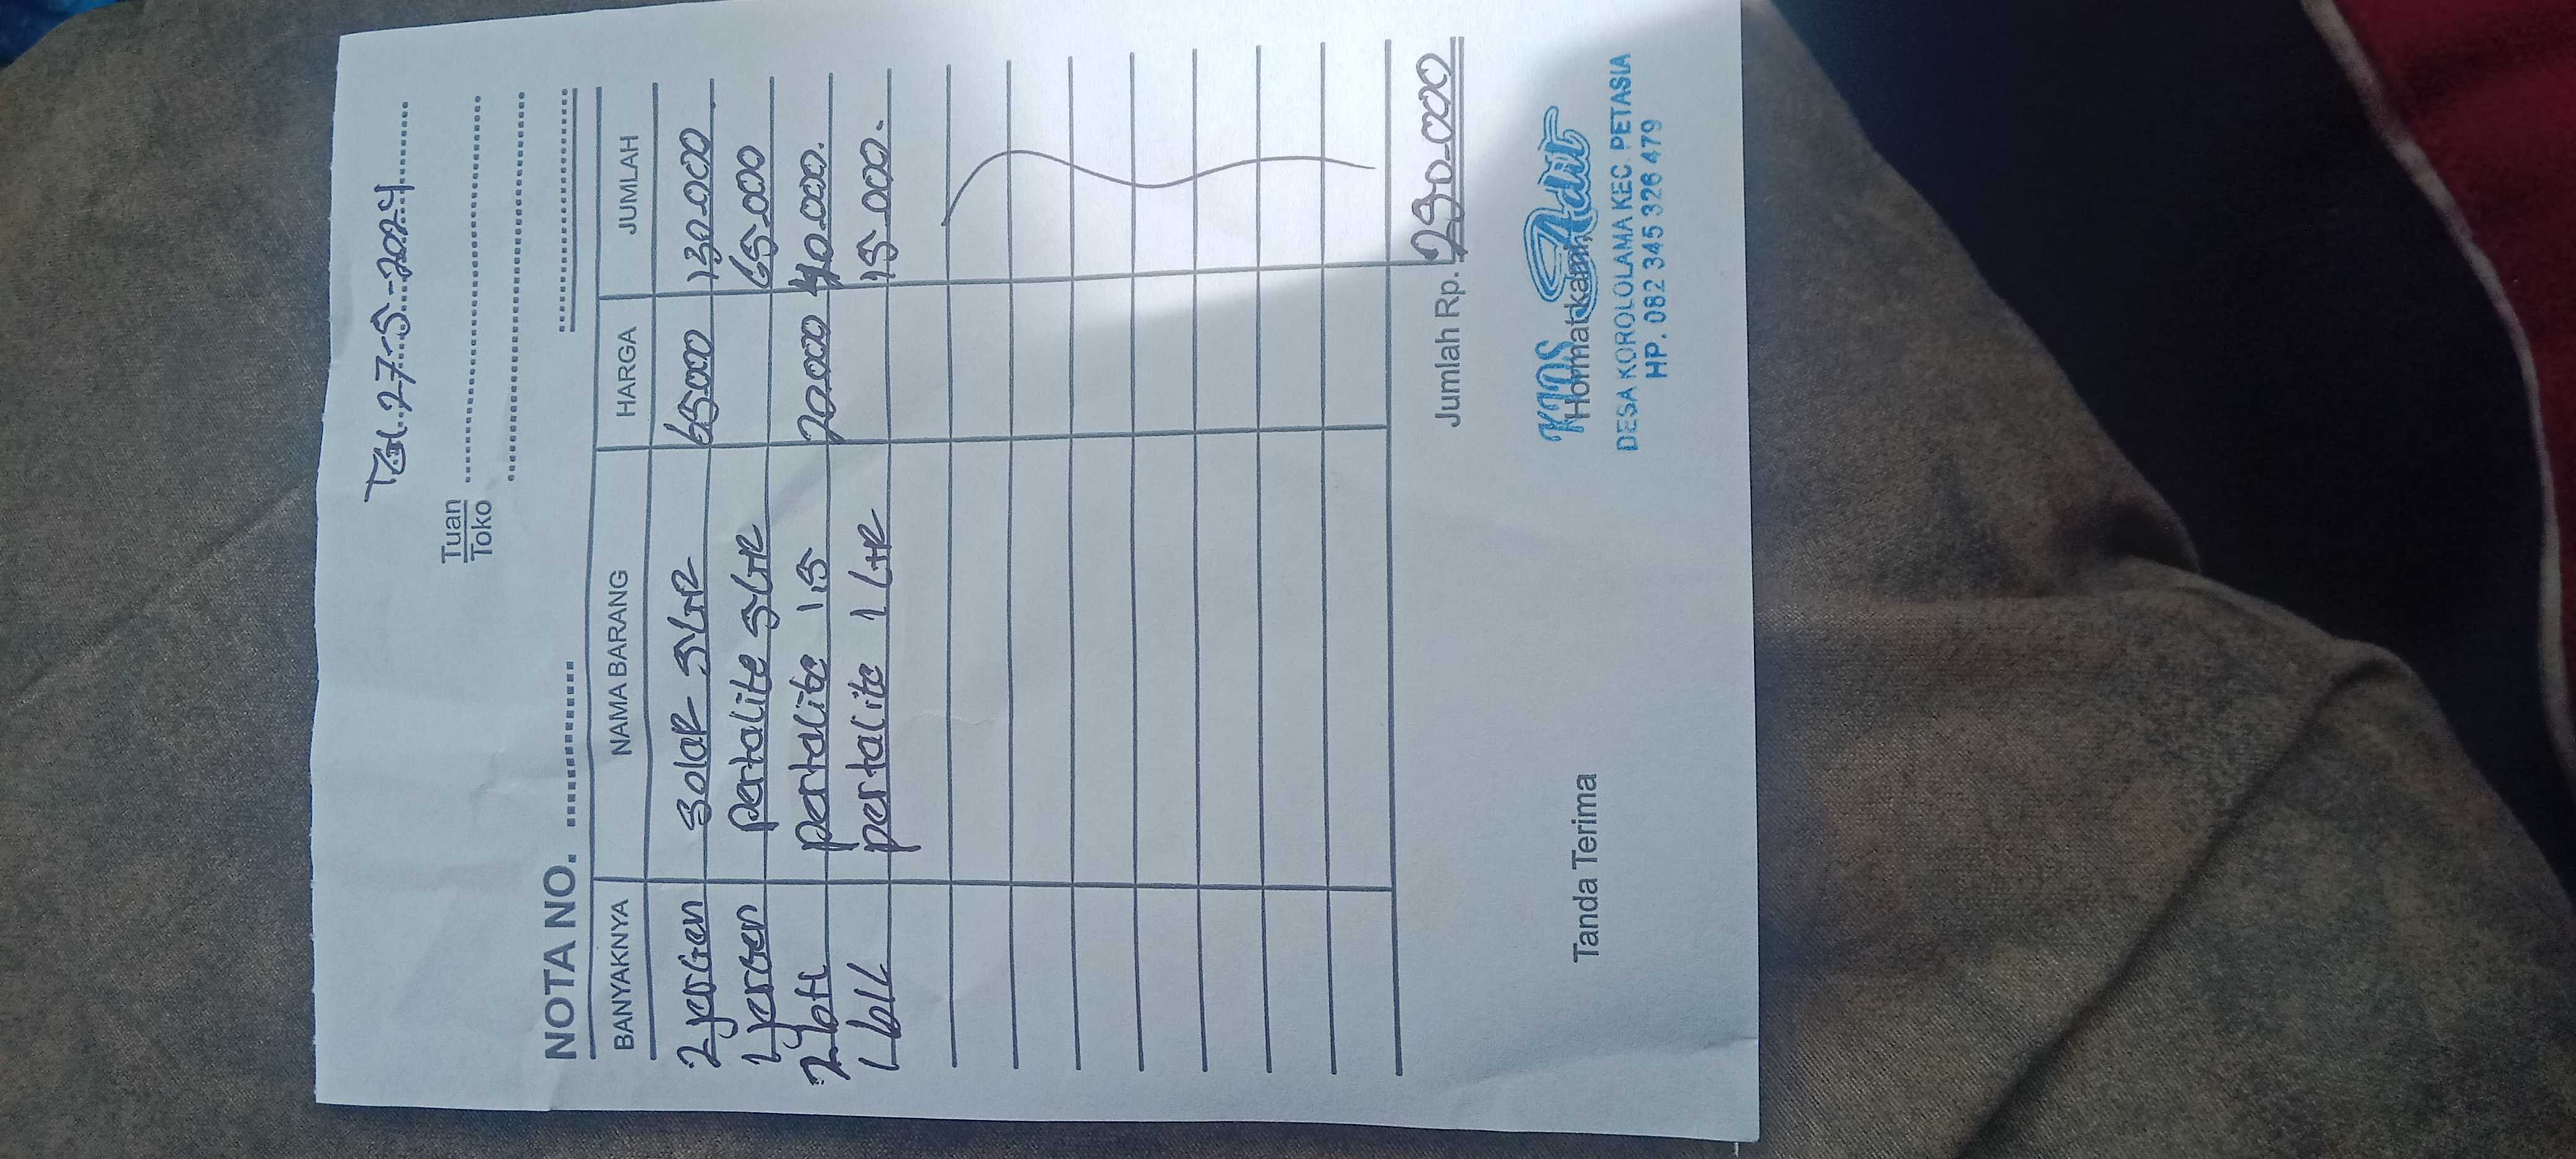 Tgl. 27-5-2024
Tuan
Toko
NOTA NO.
BANYAKNYA NAMA BARANG HARGA JUMLAH
2 jergen solar 5 Ltr 65000 130.000
1 jergen pertalite 5 Ltr 65.000
2 botl pertalite 1,5 20.000 40.000.
1 botl pertalite 1 Ltr 15.000.
Jumlah Rp. 250.000
Tanda Terima Hormat kami,
KIOS Adit
DESA KOROLOLAMA KEC. PETASIA
HP. 082 345 326 479